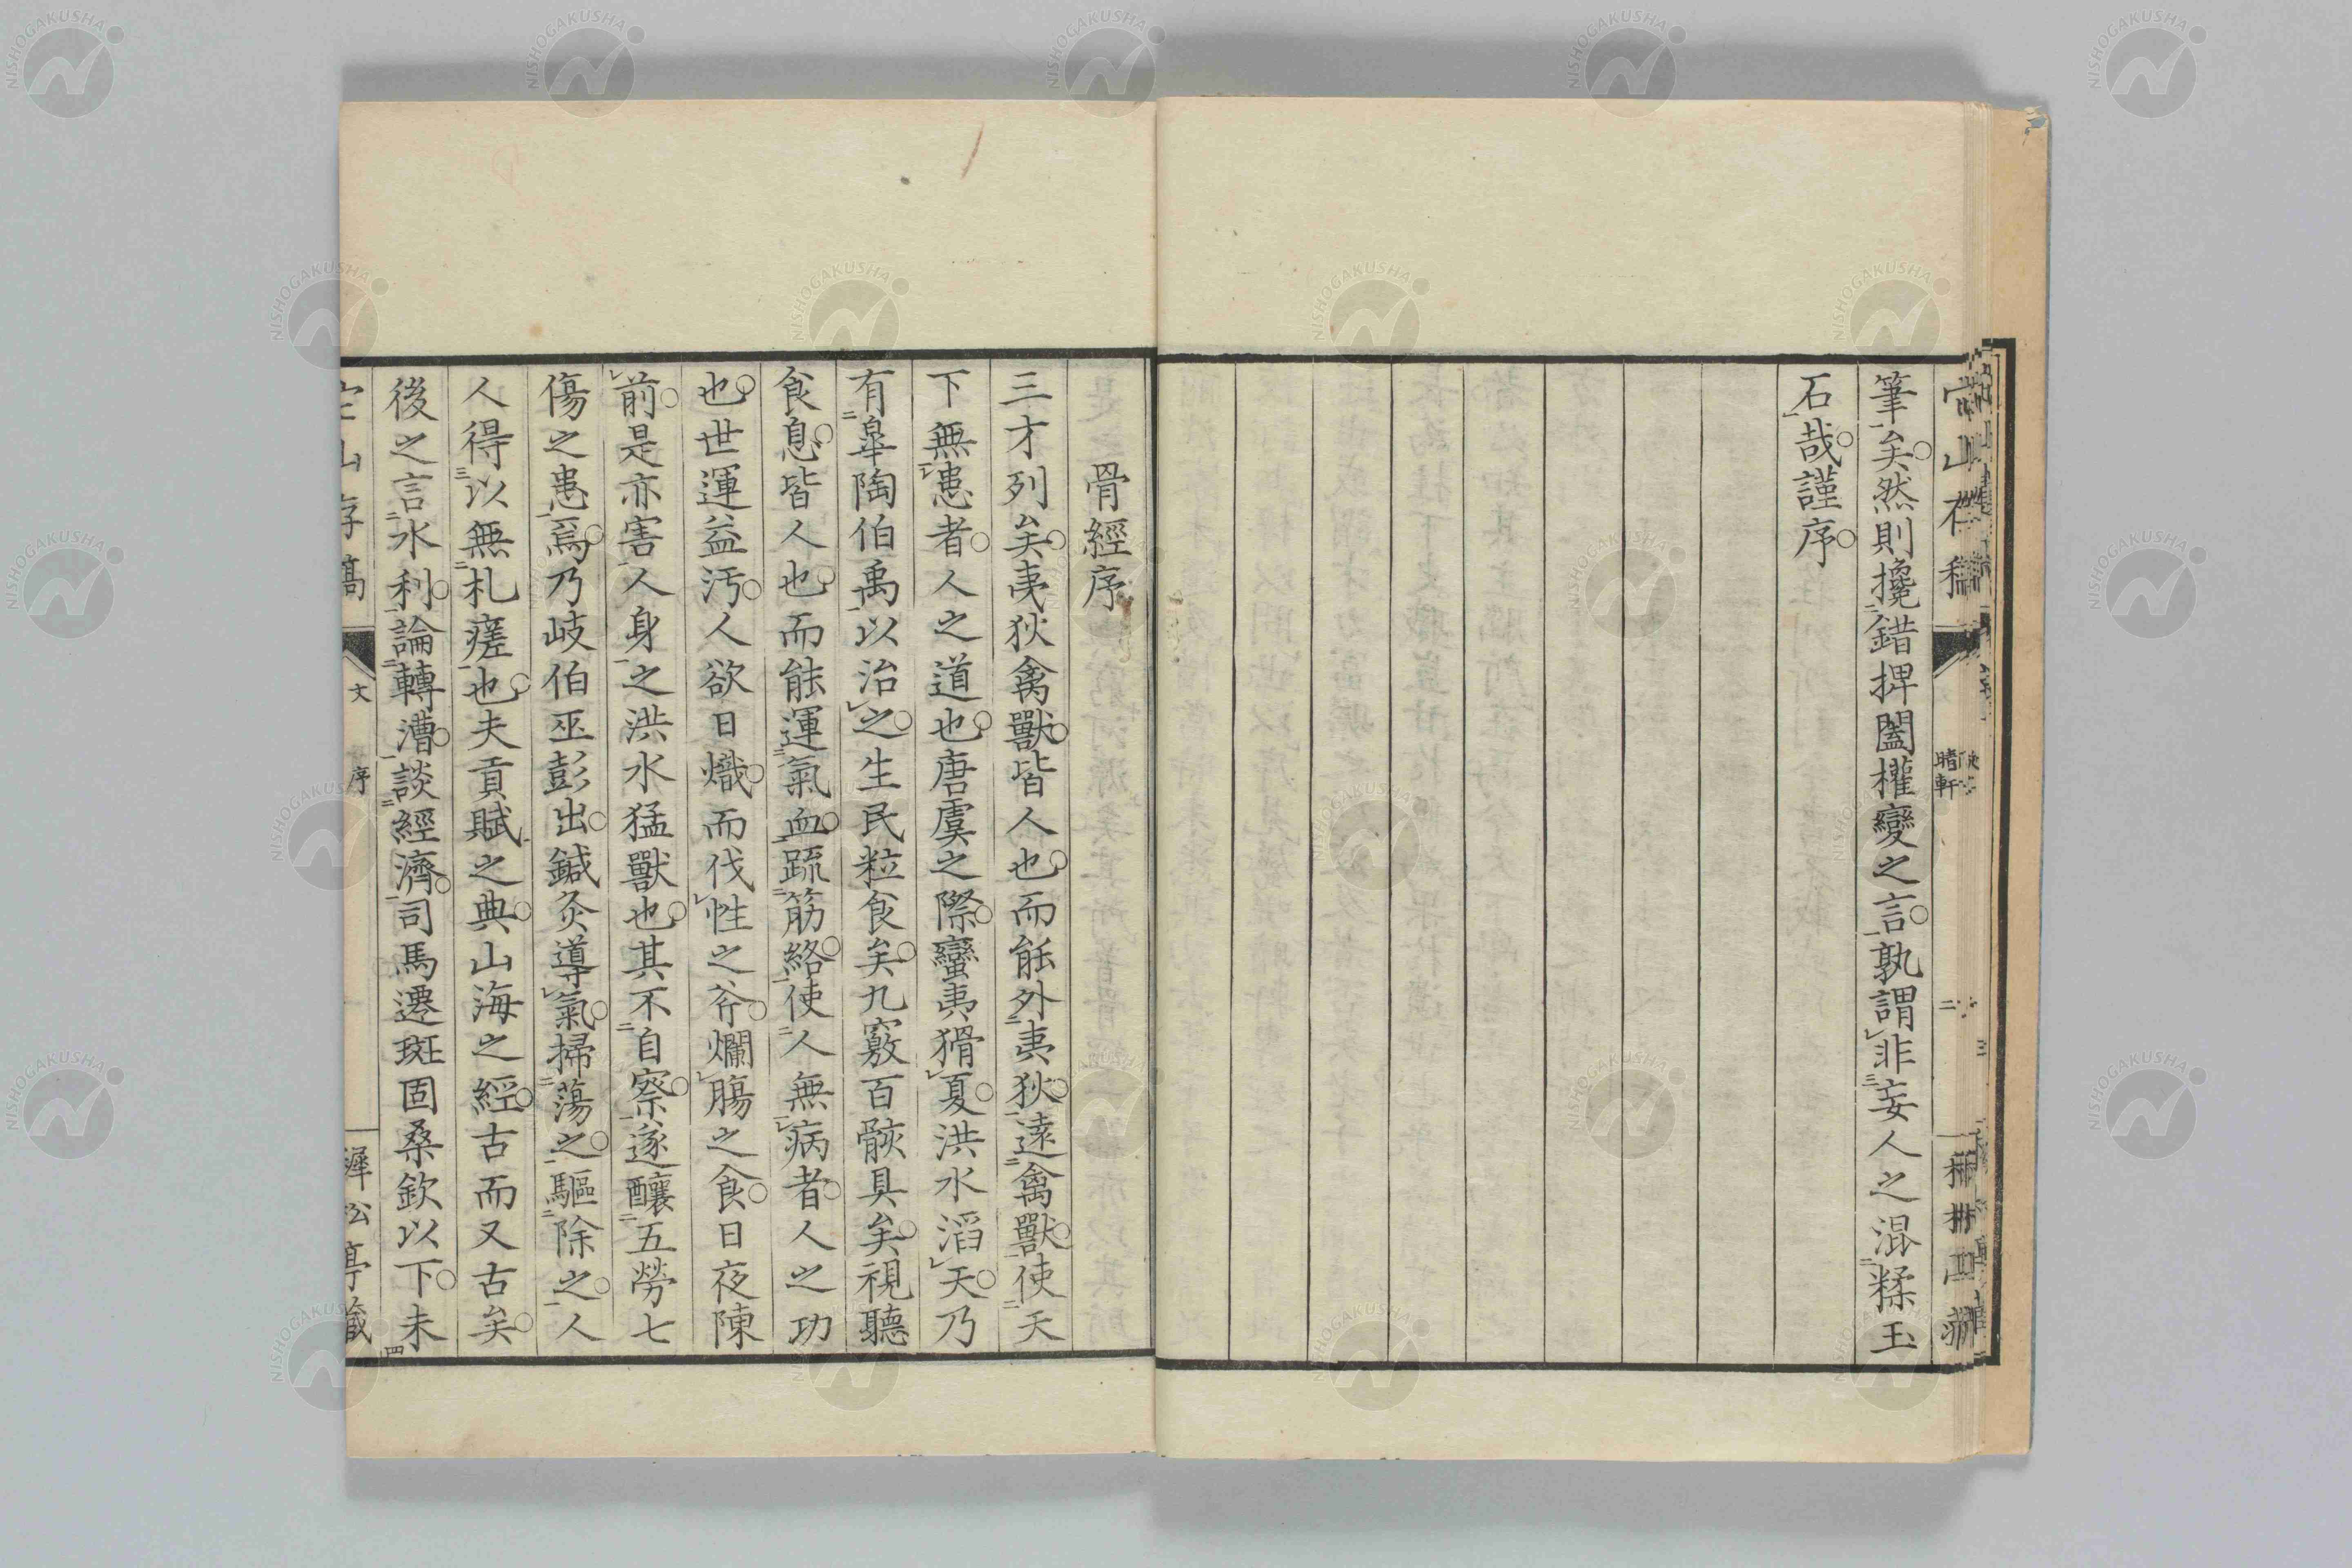 筆矣然則攙錯捭闔權變之言孰謂非妄人之混糅玉
石哉謹序
骨經序
三才列矣夷狄禽獸皆人也而能外夷狄遠禽獸使天
下無患者人之道也唐虞之際蠻夷猾夏洪水滔天乃
有皐陶伯禹以治之生民粒食矣九竅百骸具矣視聽
食息皆人也而能運氣血疏筋絡使人無病者人之功
也世運益汚人欲日熾而伐性之斧爛腸之食日夜陳
前是亦害人身之洪水猛獸也其不自察遂釀五勞七
傷之患焉乃岐伯巫彭出鍼灸導氣掃蕩之驅除之人
人得以無札瘥也夫貢賦之典山海之經古而又古矣
後之言水利論轉漕談經濟司馬遷班固桑欽以下未
文 序
NISHOGAKUSHA